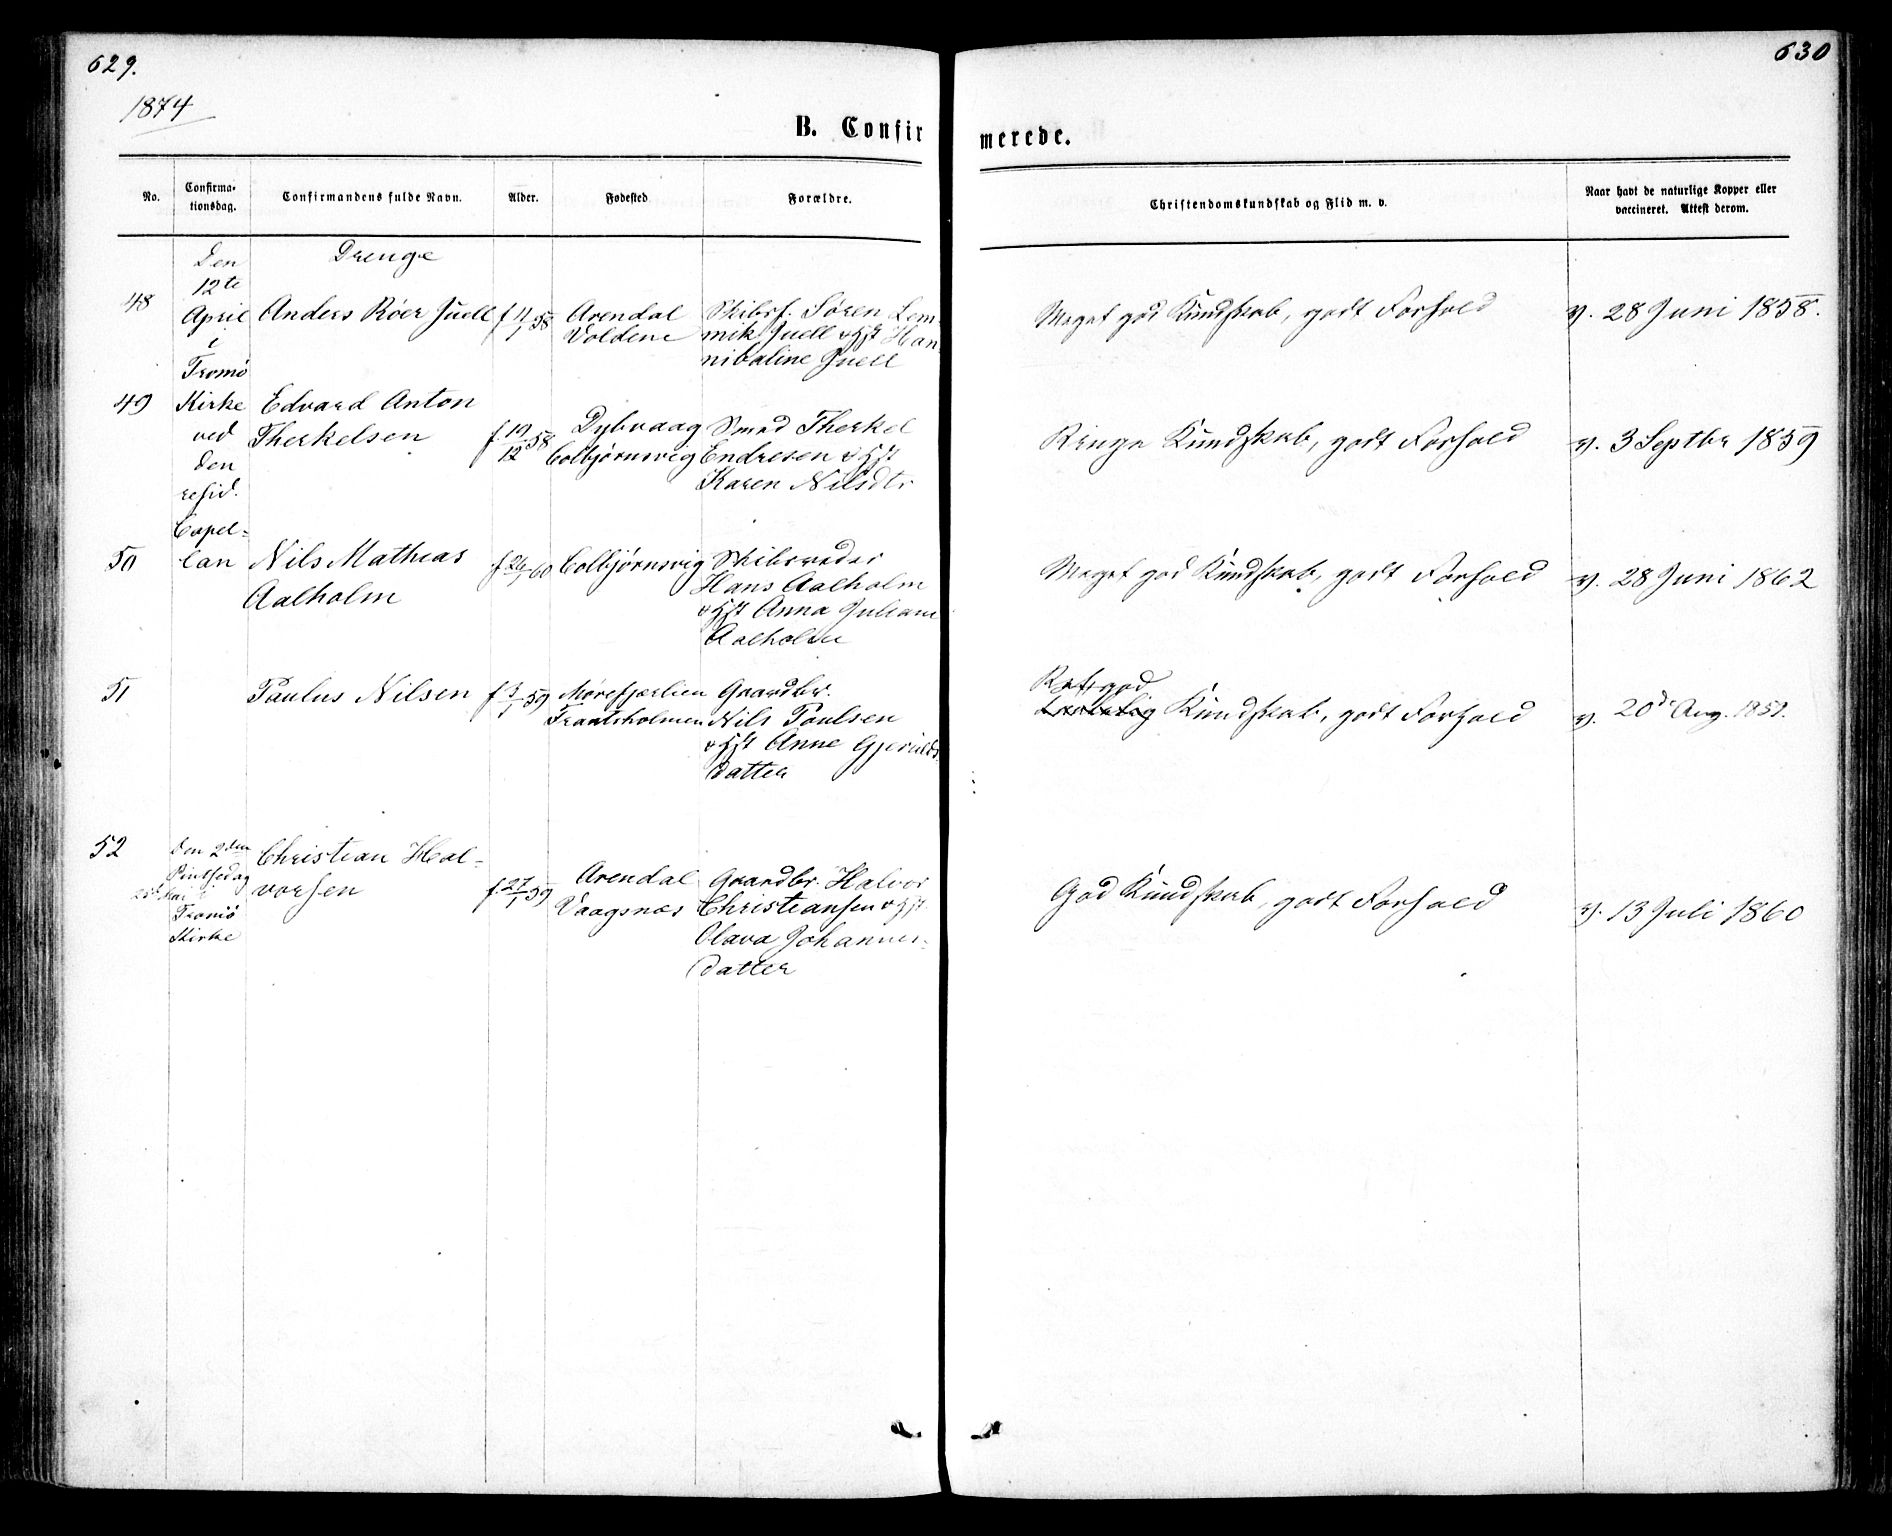 629.
630
1874
B. Confir
merede.
No.
Confirma-
tionsdag.
Confirmandens fulde Navn.
Alder.
Fødested
Forældre.
Christendomskundskab og Flid m. v.
Naar havt de naturlige Kopper eller
vaccineret. Attest derom.
Den
12te
April
i
Tromø
Kirke
ved
den
resid.
Capel-
lan
Drenge
48
Anders Röer Juell
f 11/1 58
Arendal
Voldene
Skibsf. Sören Lem-
mik Juell & Hst Han-
nibaline Juell
Meget god Kundskab, godt Forhold
v. 28 Juni 1858.
49
Edvard Anton
Therkelsen
f 19/12 58
Dybvaag
Colbjørnsvig
Smed Therkel
Endresen & Hst
Karen Nilsdtr
Ringe Kundskab, godt Forhold
v. 3 Septbr 1859
50
Nils Mathias
Aalholm
f 26/1 60
Colbjørnsvig
Skibsreder
Hans Aalholm
& Hst Anna Juliane
Aalholm
Meget god Kundskab, godt Forhold
v. 28 Juni 1862
51
Paulus Nilsen
f 3/1 59
Mørefjærlien
Gaardbr.
Nils Poulsen
& Hst Anne Gjerulds-
datter
Ret god
Kundskab, godt Forhold
v. 20de Aug. 1859.
52
Den 2den
Pintsedag
25de Mai i
Tromö
Kirke
Christian Hal-
vorsen
f 27/1 59
Arendal
Vaagsnæs
Gaardbr. Halvor
Christiansen & Hst
Olava Johannes-
datter
God Kundskab, godt Forhold
v. 13 Juli 1860